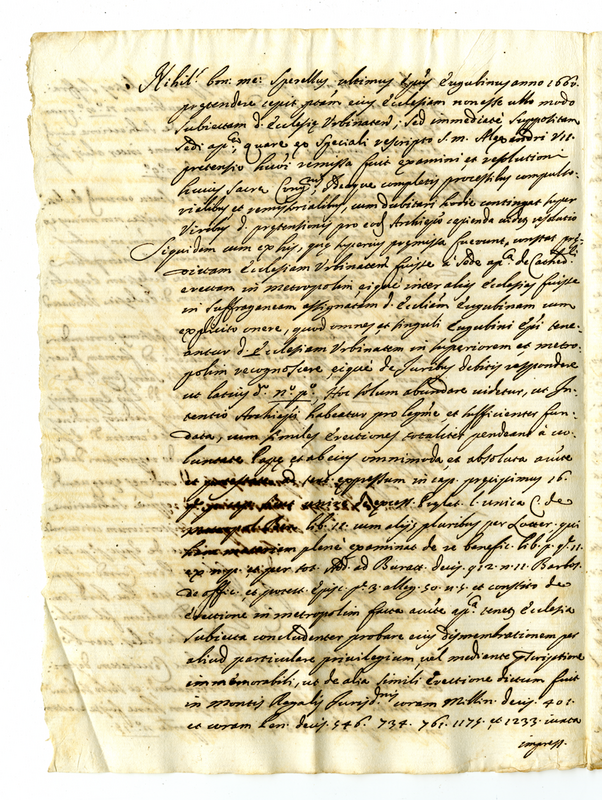 Nihil. bon: me: Sperellus ultimus Epūs Eugubinus anno 1660.
prętendere cepit ptām eius Ecclesiam non esse ullo modo
subiectam d. Ecclesię Urbinaten̄, sed immediatè suppositam
Sedi apcę, quare ex speciali rescripto S. m. Alexandri VII.
pretensio huiūi remissa fuit examini et resolutioni
huius Sacrę Congnis, Deque completis processibus compulso-
rialibus et remissorialibus, cum dubitari hodie contingat super
viribus d. prętensionis pro eod Archiepō capienda videt resolutio
Siquidem cum ex his, quę superius pręmissa fuerunt, constat prę-
dictam Ecclesiam Urbinaten̄ fuisse à Sede apca de Cathedli
erectam in metropolim eique inter alias Ecclesias fuisse
in suffraganeam assignatam d. Ecclām Eugubinam cum
explicito onere, quod omnes et singuli Eugubini Epī tene-
antur d. Ecclesiam Urbinatem in superiorem et metro-
polim recognoscere eique de Juribus debitis respondere
ut latius dr. no. po. Hoc solum abundare videtur, ut In-
tentio Archiepī habeatur pro legme et sufficienter fun-
data, cum similes erectiones totaliter pendeant à vo-
luntate Papę et ab eius omnimoda et absoluta aucte
et potestate ad text. expressum in cap. pręcipimus 16.
Perlat. l. unica C. de
lib. 11. cum alijs pluribus per Lotter. qui
hanc materiam plenè examinat de re benefic. lib. p. q. 11.
ex n. p. et per tot. Add. ad Buratt. decis. 912. n. 11. Barbos.
de offic. et potest. Episc. p. 3. alleg. 50. n. 5. et constito de
erectione in metropolim facta aucte apca tenet Ecclesia
subiecta concludenter probare eius dismembrationem per
aliud particulare privilegium, vel mediante pręscriptione
immemorabili, ut de alia simili erectione dictum fuit
in Montis Regalis Jurisdnis coram Millin. decis. 401.
et coram Pen. decis. 546. 734. 761. 1175. et 1233. iuxta
impress.